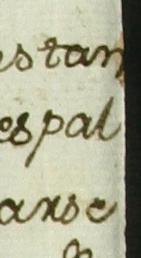 estan
espal
arse